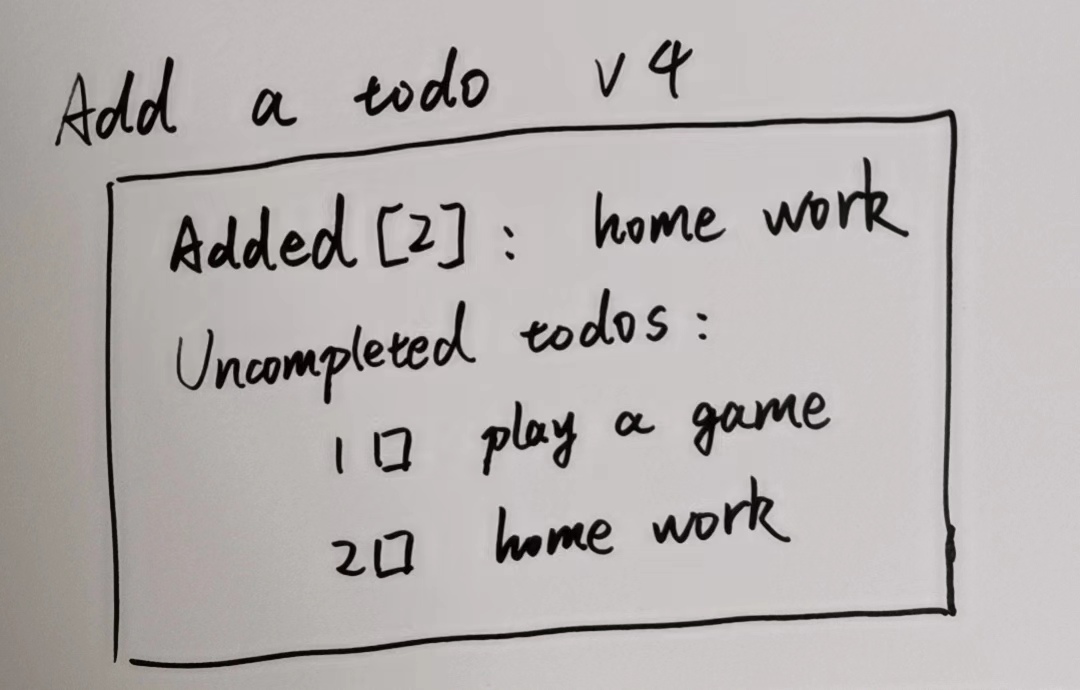 Add a todo v4
Added [2] : home work
Uncompleted todos :
1 □ play a game
2 □ home work